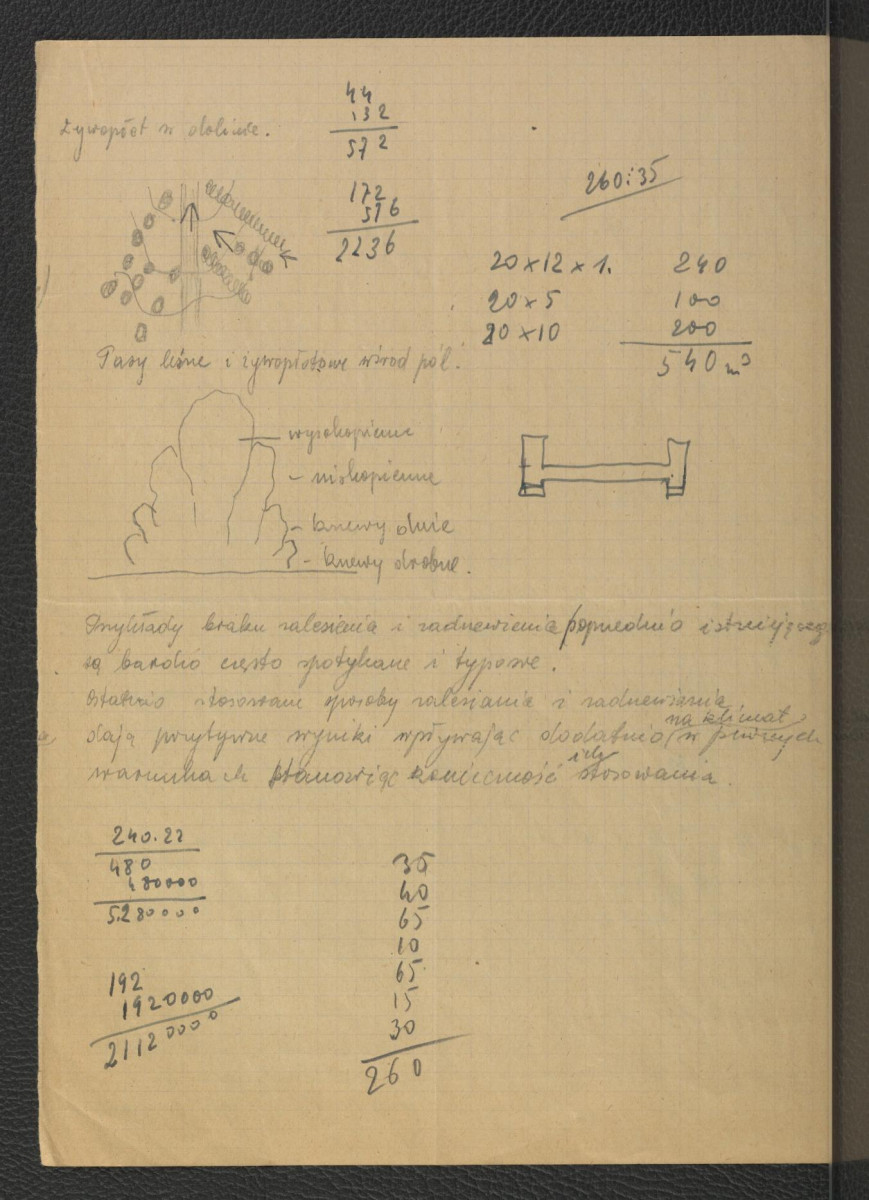 Żywopłot w dolinie.
44
132
572
172
516
2236
260:35
20 × 12 × 1. 240
20 × 5 100
20 × 10 200
540 m³
Pasy leśne i żywopłotowe wśród pól.
wysokopienne
- niskopienne
- krzewy duże
- krzewy drobne.
Przykłady braku zalesienia i zadrzewienia poprzednio
są bardzo często spotykane i typowe.
Ostatnio stosowane sposoby zalesiania i zadrzewiania
na klimat
dają pozytywne wyniki wpływając dodatnio w
ich
warunkach stanowiąc konieczność stosowania.
240.22
480
480000
5280000
192
1920000
21120000
35
40
65
10
65
15
30
260